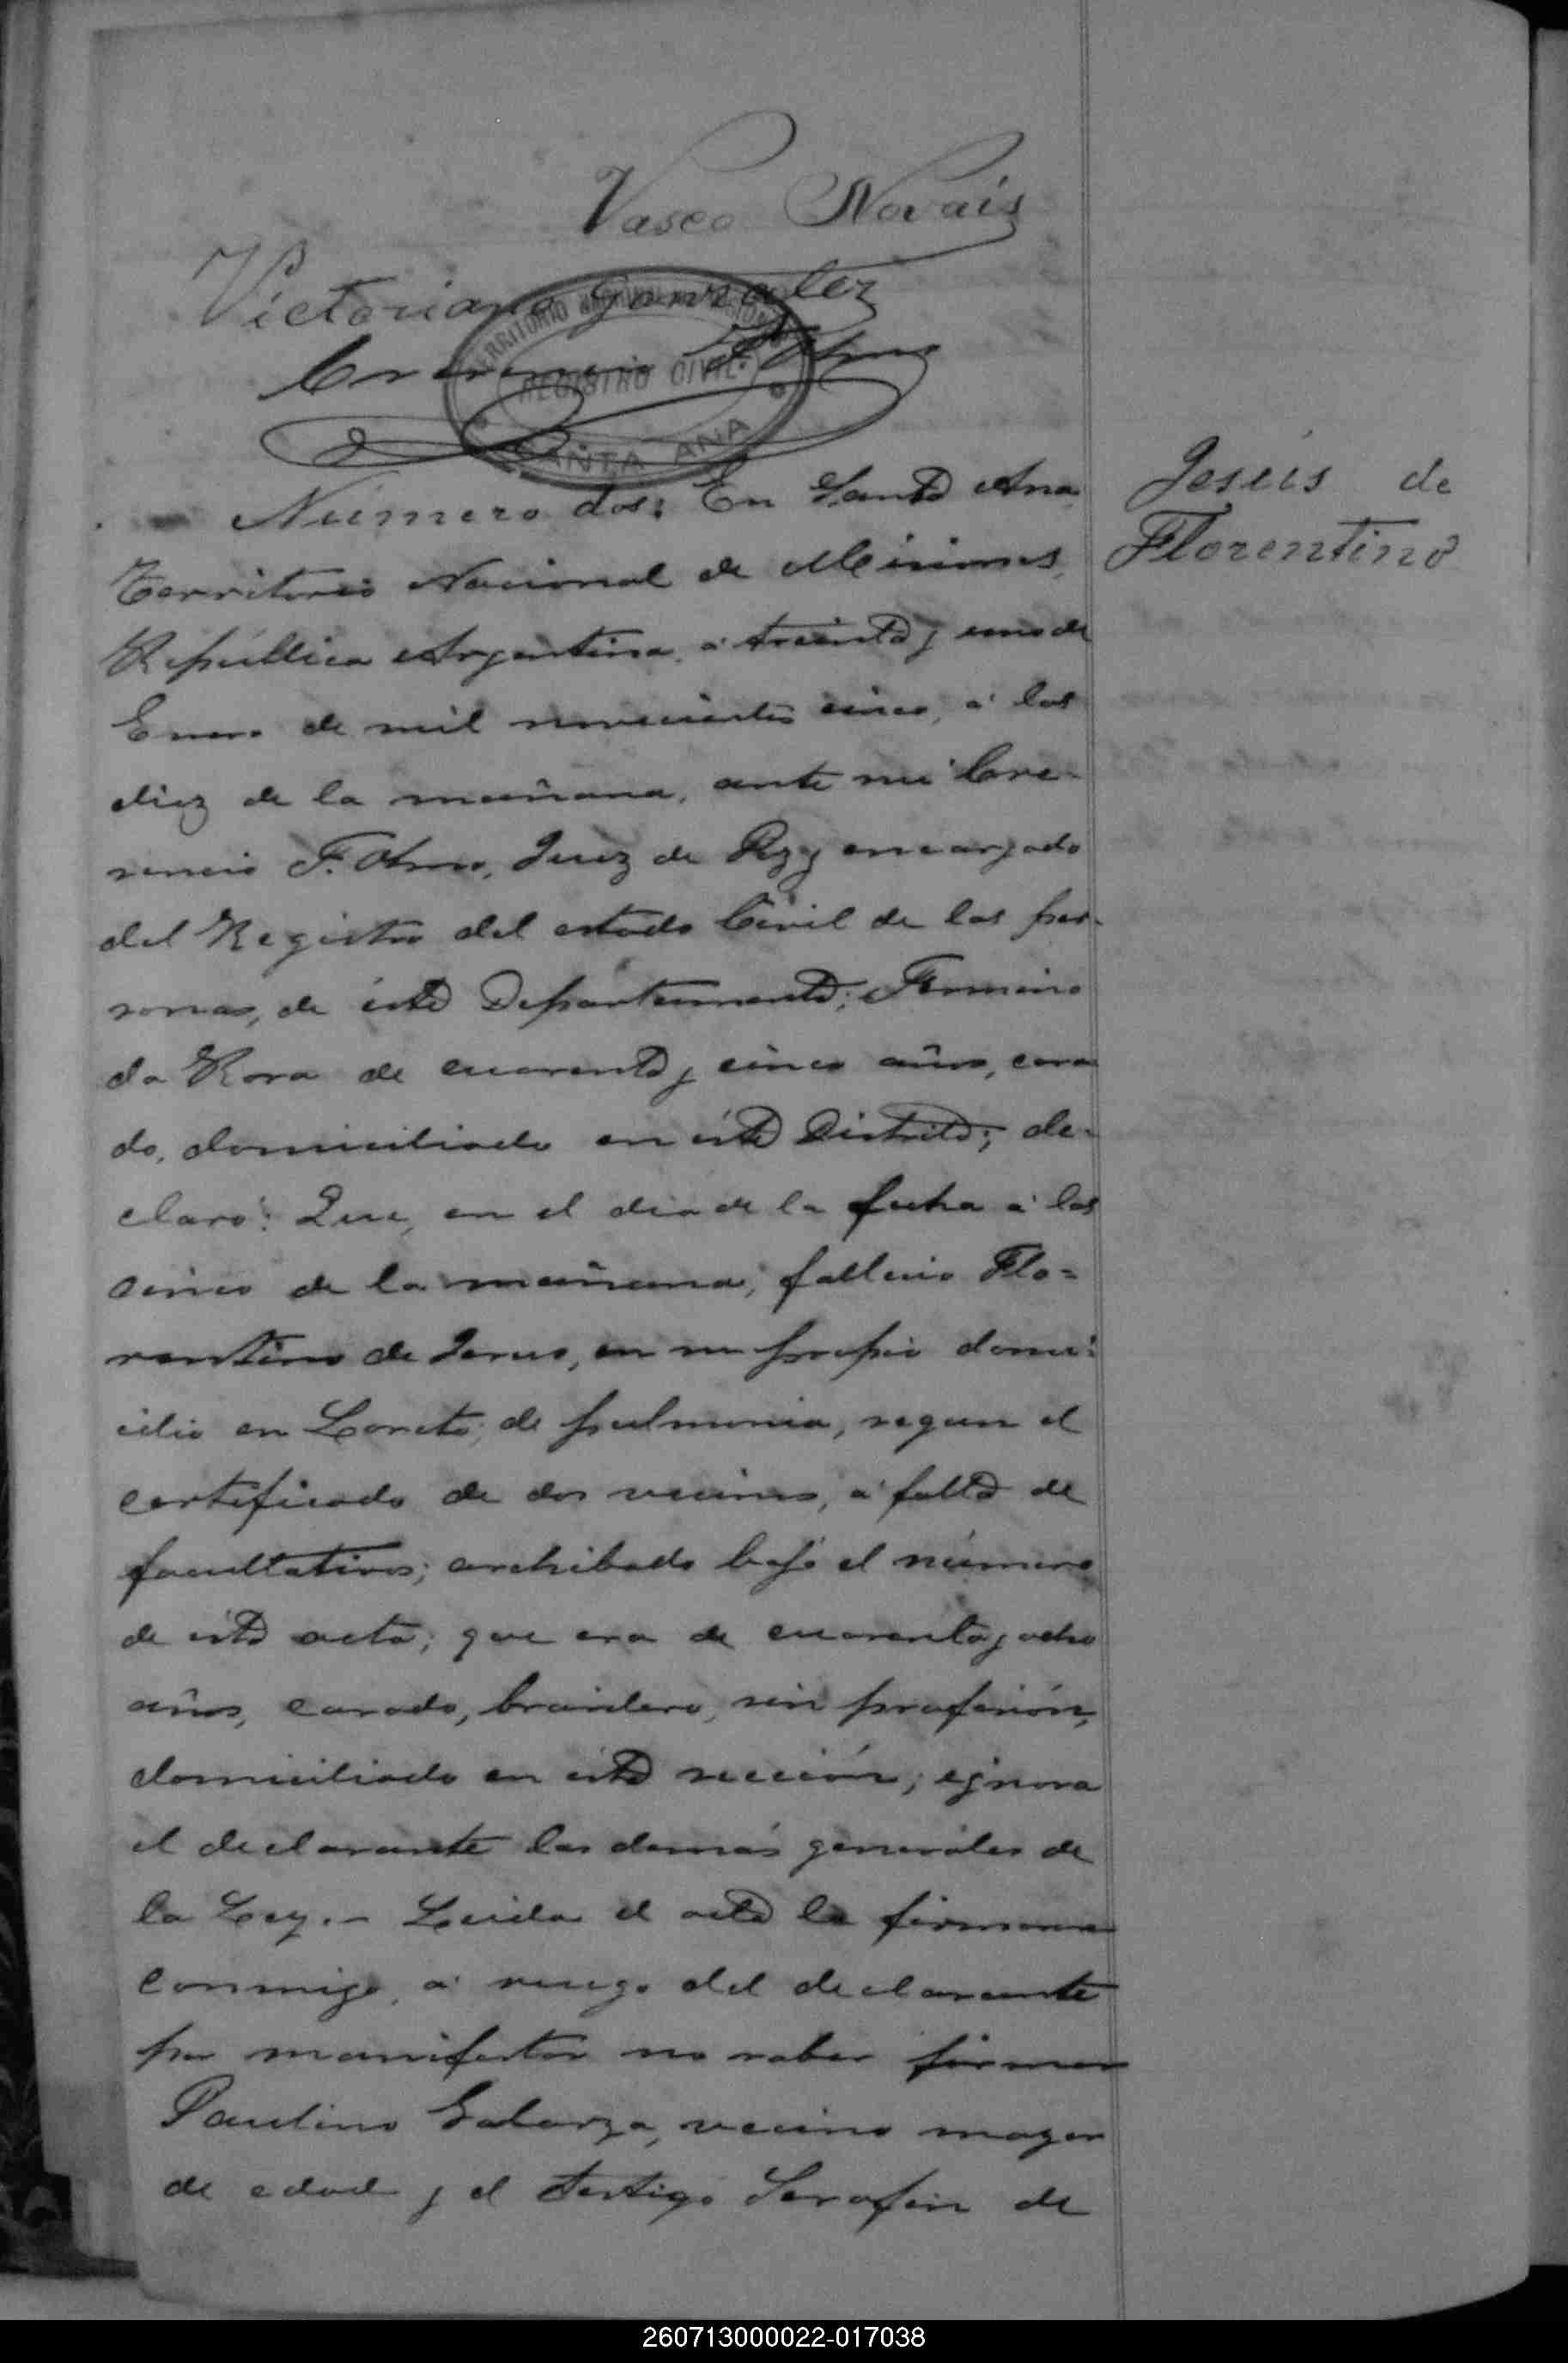 Vasco Novais
Victoriano Gonzalez
TERRITORIO NACIONAL DE MISIONES
REGISTRO CIVIL
SANTA ANA
Número dos: En Santa Ana
Territorio Nacional de Misiones,
República Argentina, á treinta y uno de
Enero de mil novecientos cinco, á las
diez de la mañana, ante mi Cre-
sencio F. Juez de Paz y encargado
del Registro del estado Civil de las per-
sonas, de éste Departamento; Firmino
da Rosa de cuarenta y cinco años, casa
do, domiciliado en éste Distrito; de-
claró: Que, en el dia de la fecha á las
cinco de la mañana, fallecio Flo=
rentino de Jesus, en su propio domi-
cilio en Loreto; de pulmonia, segun el
certificado de dos vecinos, á falta de
facultativos; archibado bajo el número
de ésta acta; que era de cuarenta y ocho
años, casado, brasilero, sin profesión,
domiciliado en ésta sección; ignora
el declarante las demás generales de
la Ley.- Leida el acta la firmaron
conmigo, á ruego del declarante
por manifestar no saber firmar
Paulino Galarza, vecino mayor
de edad y el testigo Serafin de
Jesús de
Florentino
260713000022-017038